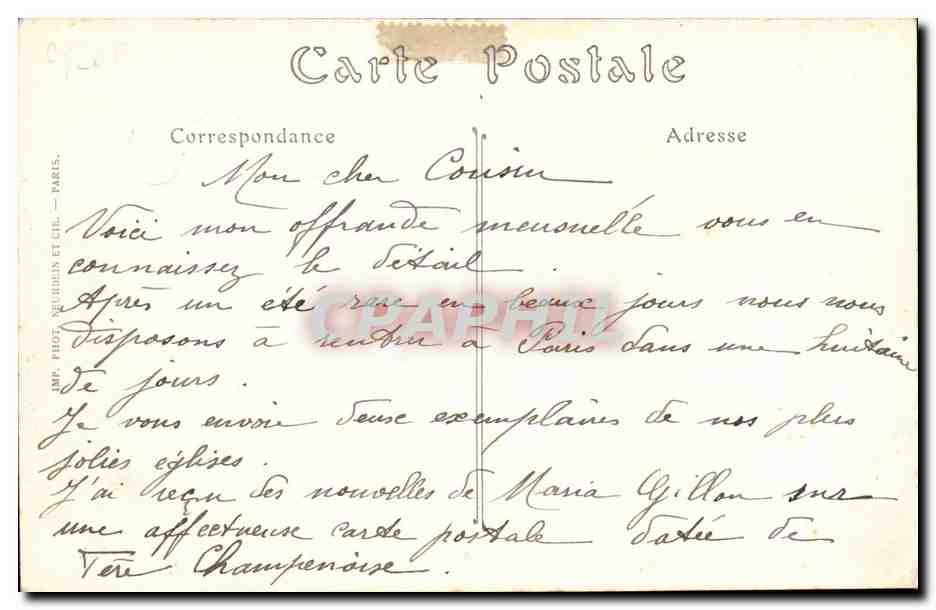 Carte Postale
Correspondance
Adresse
IMP. PHOT. NEURDEIN ET CIE. — PARIS.
Mon cher Cousin
Voici mon offrande mensuelle vous en
connaissez le détail.
Après un été rare en beaux jours nous nous
disposons à rentrer à Paris dans une huitaine
de jours.
Je vous envoie deux exemplaires de nos plus
jolies églises.
J'ai reçu des nouvelles de Maria Gillon sur
une affectueuse carte postale datée de
Fère Champenoise.
CPAPHIL